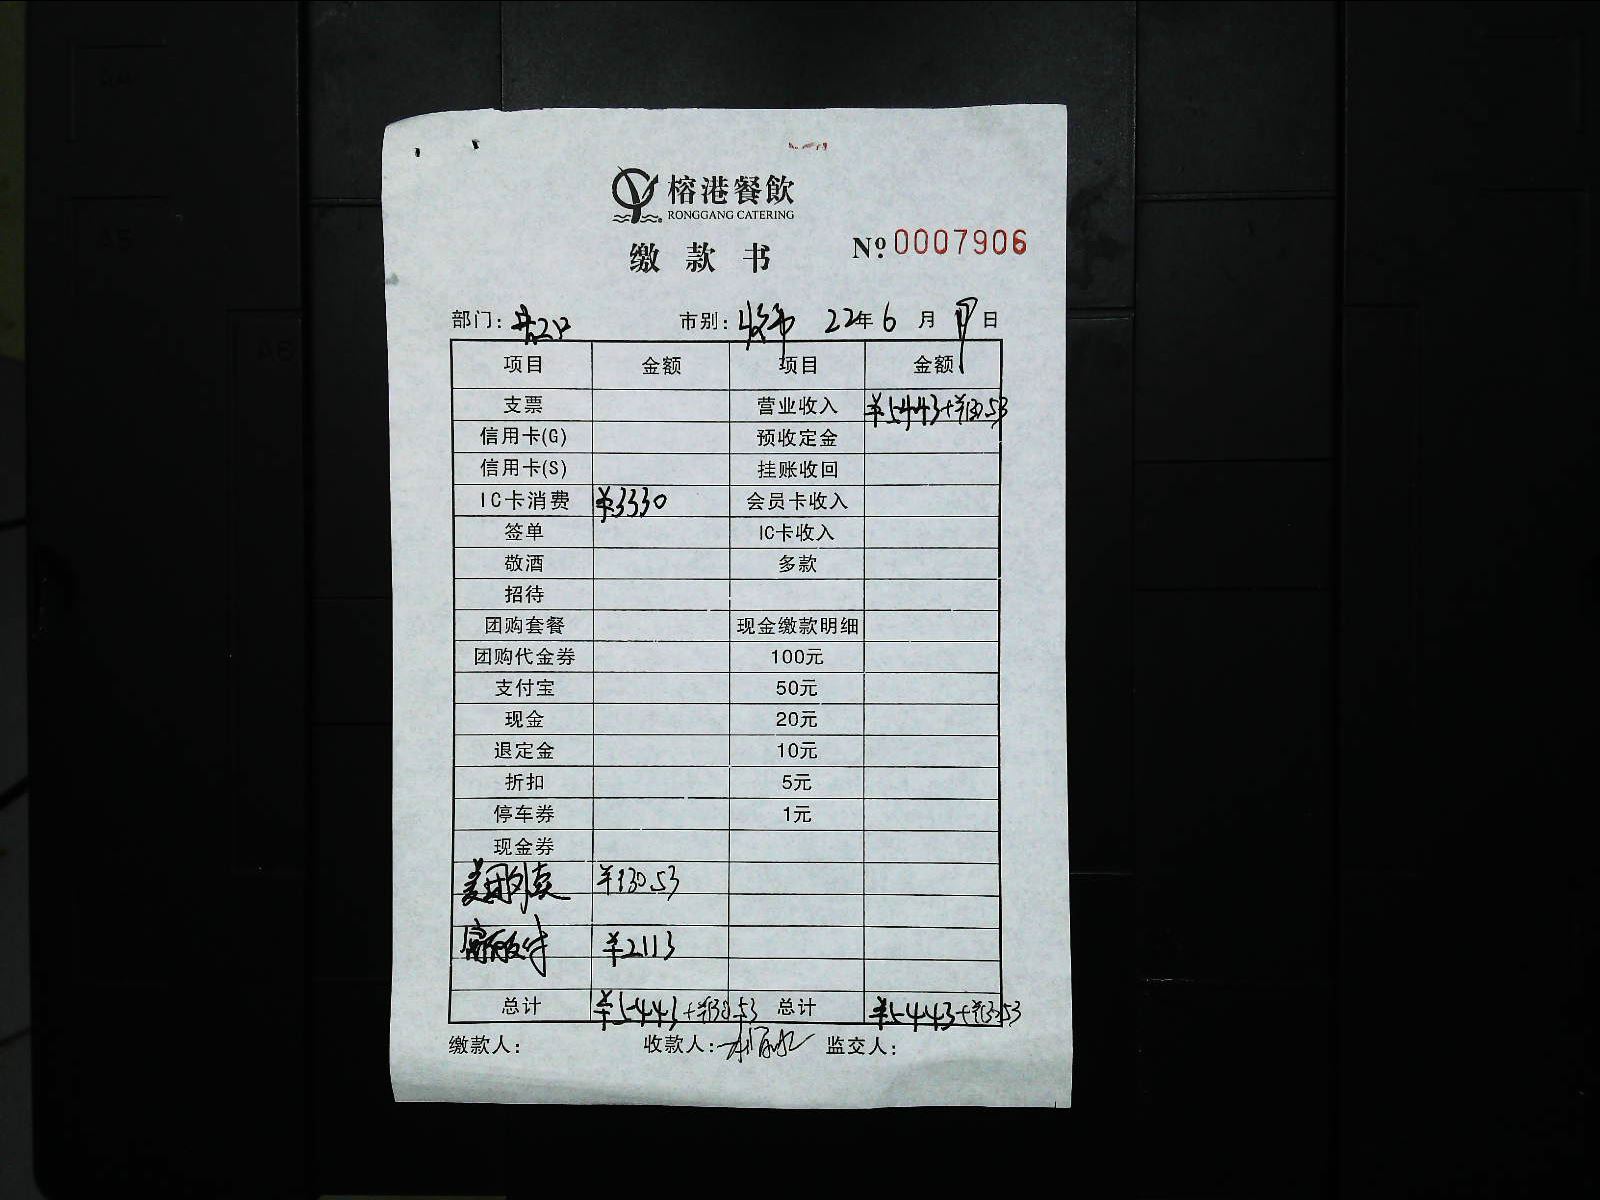 榕港餐飲
RONGGANG CATERING
缴款书 № 0007906
部门: 市别: 收市 22年6月 日
项目 金额 项目 金额
支票 营业收入 ¥5443+¥130.53
信用卡(G) 预收定金
信用卡(S) 挂账收回
IC卡消费 ¥3330 会员卡收入
签单 IC卡收入
敬酒 多款
招待
团购套餐 现金缴款明细
团购代金券 100元
支付宝 50元
现金 20元
退定金 10元
折扣 5元
停车券 1元
现金券
美团外卖 ¥130.53
¥2113
总计 ¥5443+¥130.53 总计 ¥5443+¥130.53
缴款人: 收款人: 监交人: